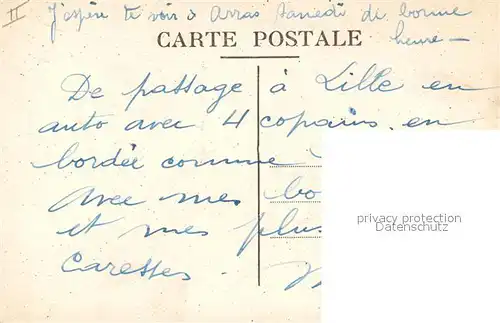 II J'espère te voir à Arras samedi de bonne
heure —
CARTE POSTALE
De passage à Lille en
auto avec 4 copains en
bordée comme
avec mes bo
et mes plus
Caresses.
privacy protection
Datenschutz